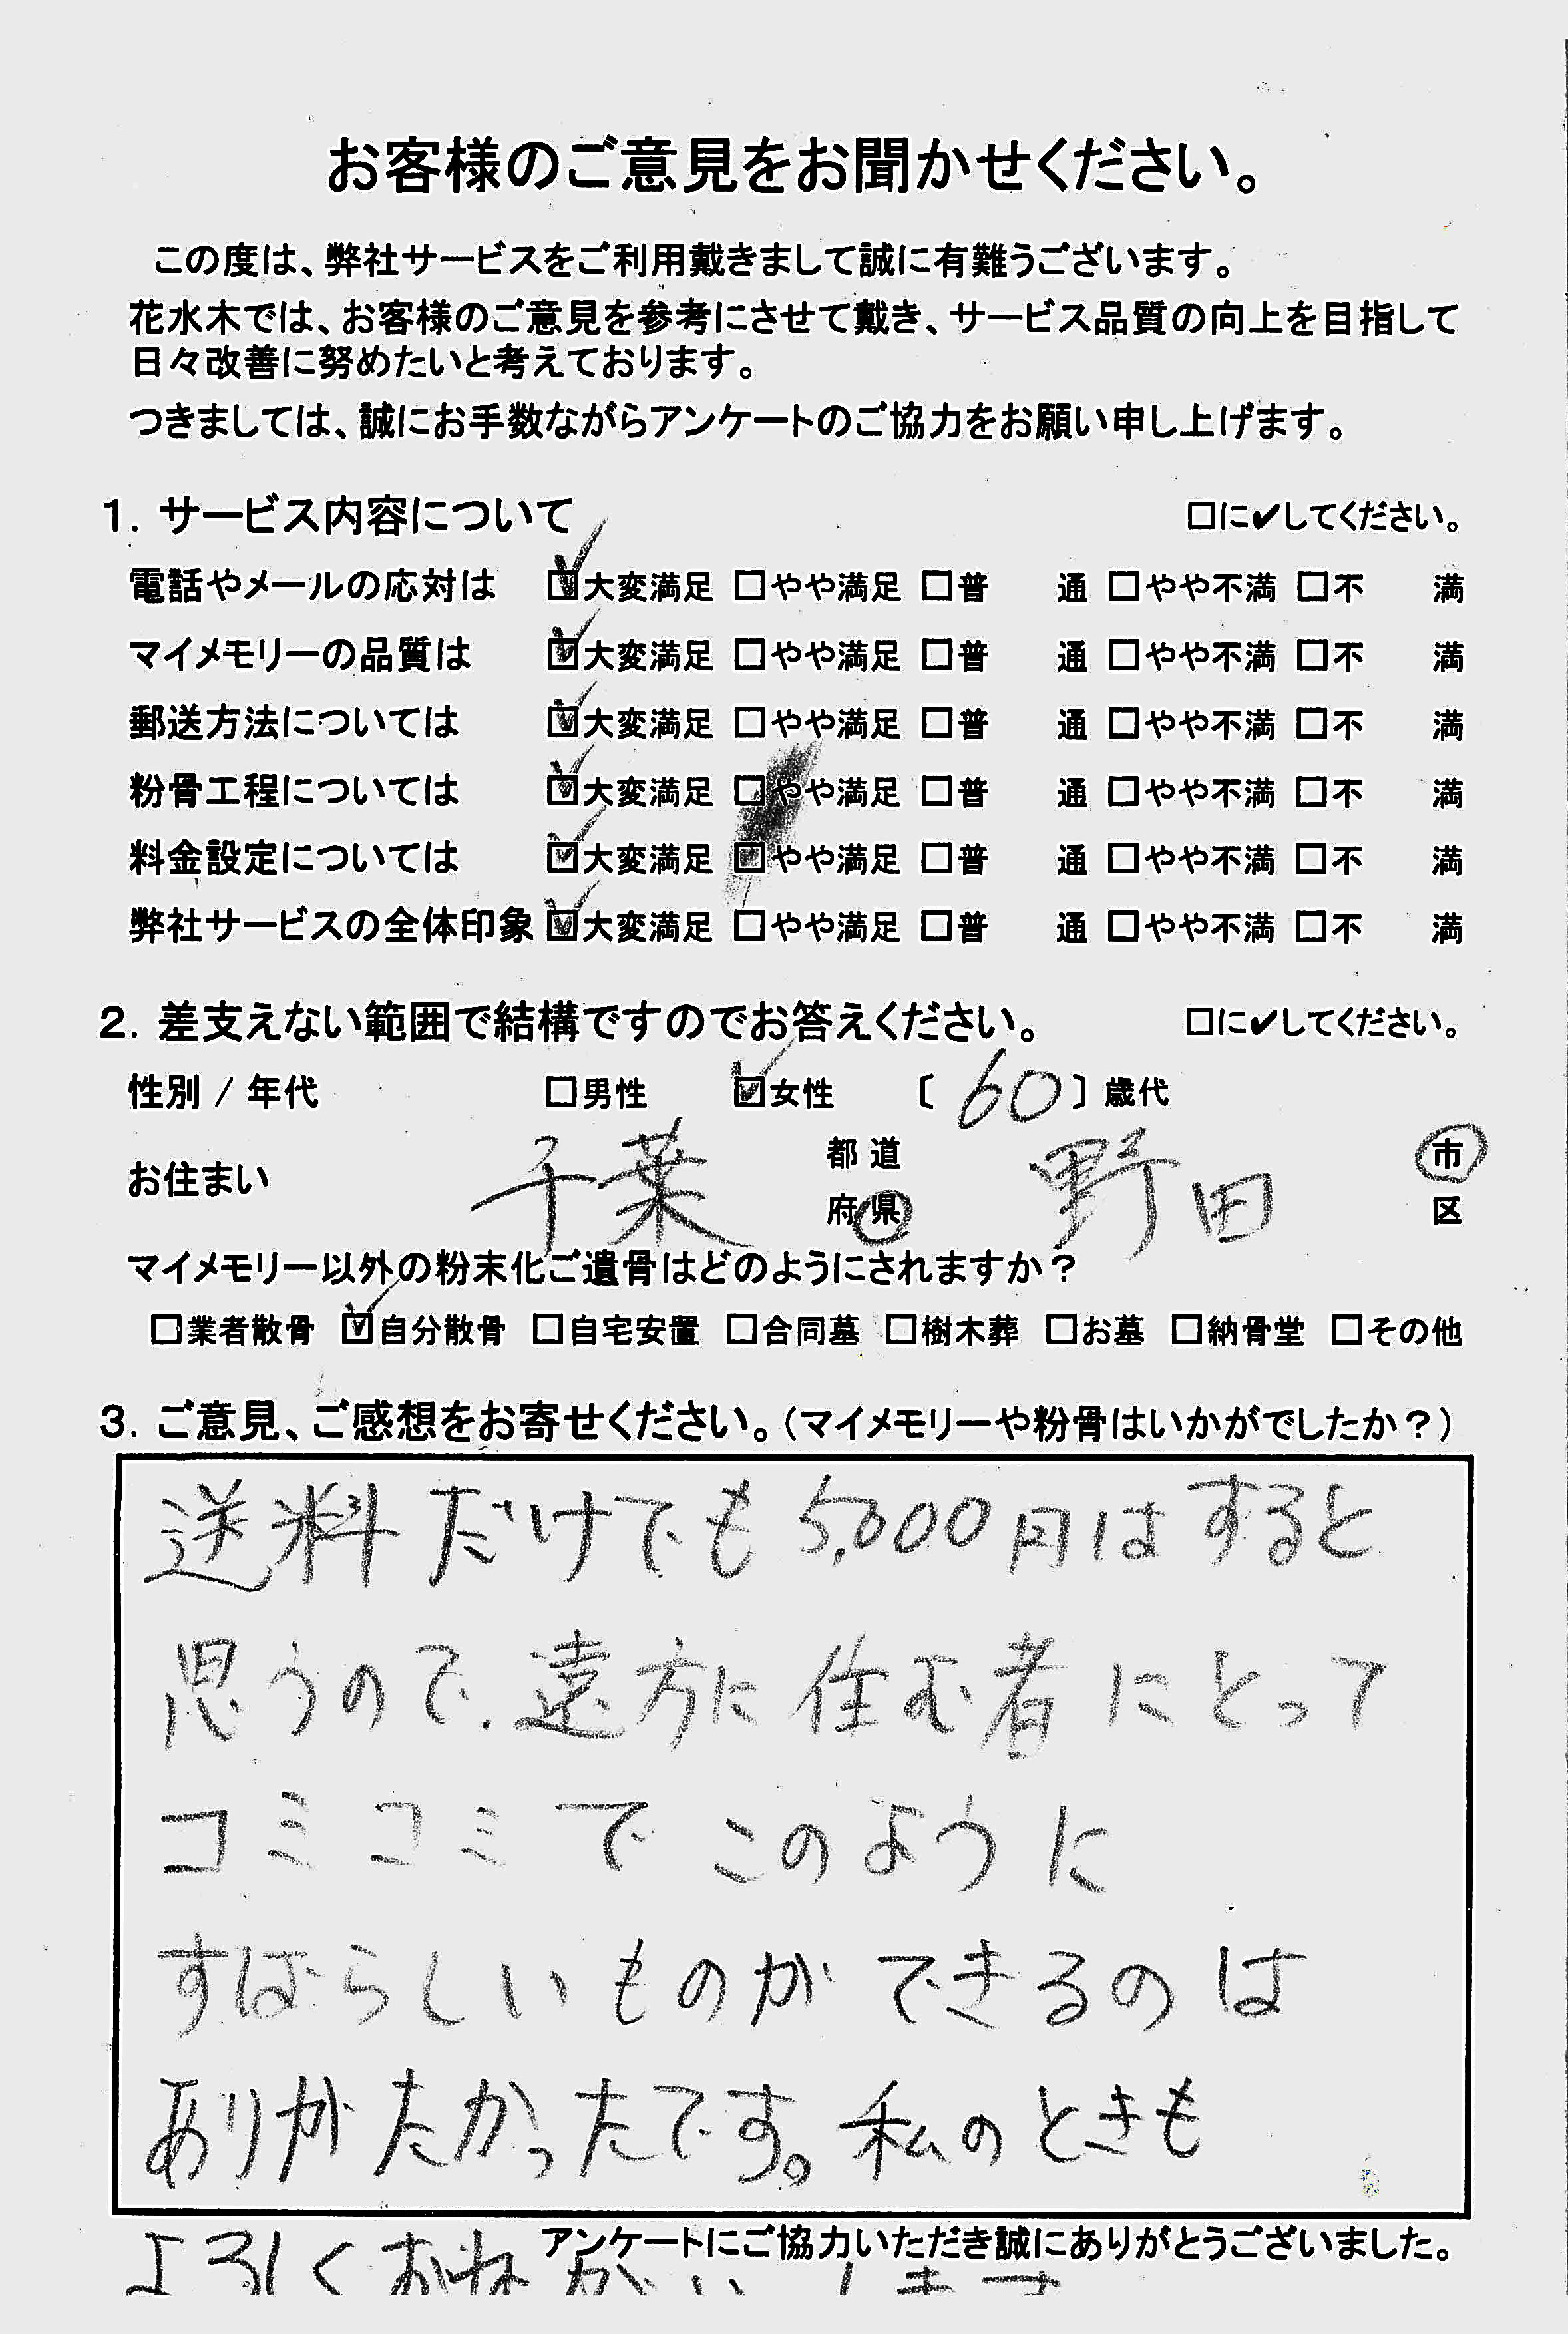 お客様のご意見をお聞かせください。
この度は、弊社サービスをご利用戴きまして誠に有難うございます。
花水木では、お客様のご意見を参考にさせて戴き、サービス品質の向上を目指して
日々改善に努めたいと考えております。
つきましては、誠にお手数ながらアンケートのご協力をお願い申し上げます。
1. サービス内容について □に✔してください。
電話やメールの応対は ☑大変満足 □やや満足 □普 通 □やや不満 □不 満
マイメモリーの品質は ☑大変満足 □やや満足 □普 通 □やや不満 □不 満
郵送方法については ☑大変満足 □やや満足 □普 通 □やや不満 □不 満
粉骨工程については ☑大変満足 □やや満足 □普 通 □やや不満 □不 満
料金設定については ☑大変満足 □やや満足 □普 通 □やや不満 □不 満
弊社サービスの全体印象 ☑大変満足 □やや満足 □普 通 □やや不満 □不 満
2. 差支えない範囲で結構ですのでお答えください。 □に✔してください。
性別 / 年代 □男性 ☑女性 〔 60 〕歳代
お住まい 千葉 都道府県 野田 市区
マイメモリー以外の粉末化ご遺骨はどのようにされますか？
□業者散骨 ☑自分散骨 □自宅安置 □合同墓 □樹木葬 □お墓 □納骨堂 □その他
3. ご意見、ご感想をお寄せください。（マイメモリーや粉骨はいかがでしたか？）
送料だけでも5,000円はすると
思うので、遠方に住む者にとって
コミコミでこのように
すばらしいものができるのは
ありがたかったです。私のときも
よろしくおねがいします
アンケートにご協力いただき誠にありがとうございました。